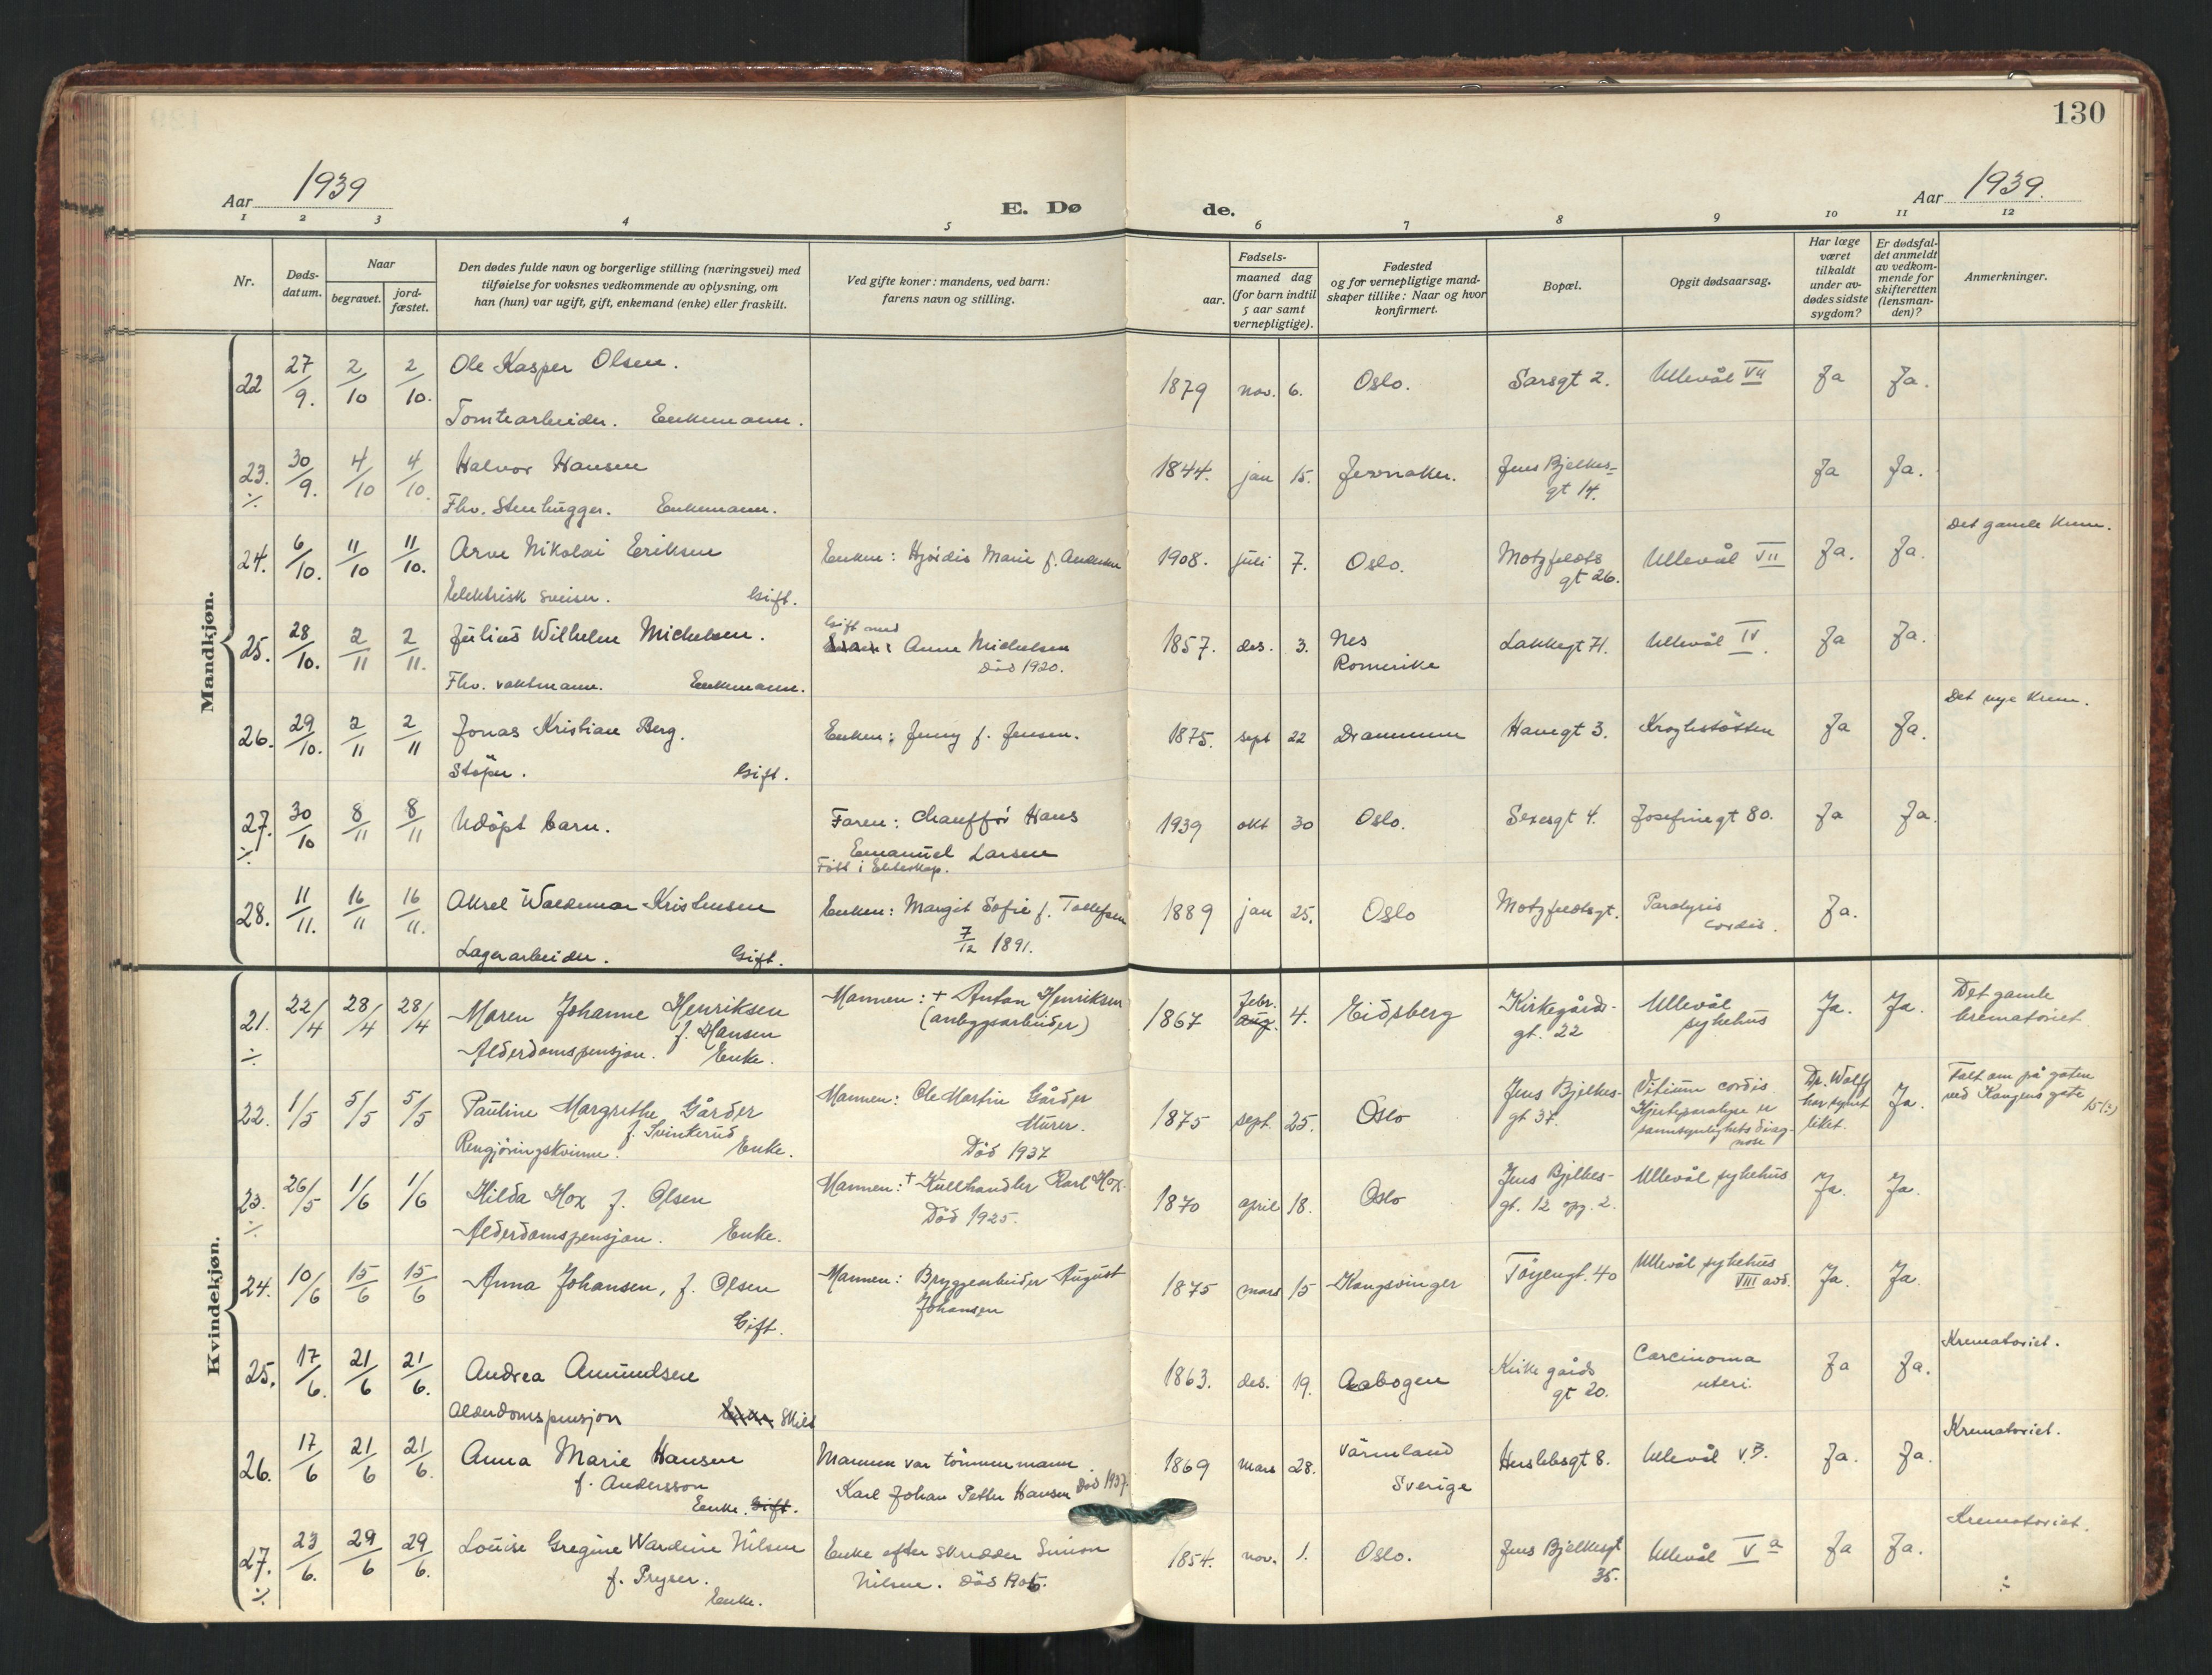 130
Aar 1939
E. Dø de.
Aar 1939.
1 2 3 4 5 6 7 8 9 10 11 12
Nr.
Døds-
datum.
Naar
begravet.
jord-
fæstet.
Den dødes fulde navn og borgerlige stilling (næringsvei) med
tilføielse for voksnes vedkommende av oplysning, om
han (hun) var ugift, gift, enkemand (enke) eller fraskilt.
Ved gifte koner: mandens, ved barn:
farens navn og stilling.
aar.
Fødsels-
maaned dag
(for barn indtil
5 aar samt
vernepligtige).
Fødested
og for vernepligtige mand-
skaper tillike: Naar og hvor
konfirmert.
Bopæl.
Opgit dødsaarsag.
Har læge
været
tilkaldt
under av-
dødes sidste
sygdom?
Er dødsfal-
det anmeldt
av vedkom-
mende for
skifteretten
(lensman-
den)?
Anmerkninger.
Mandkjøn.
22 27/9. 2/10 2/10. Ole Kasper Olsen. 1879 nov. 6. Oslo. Sarsgt 2. Ullevål VII Ja Ja.
Tomtearbeider. Enkemann.
23. 30/9. 4/10 4/10. Halvor Hansen 1844. jan 15. Jevnaker. Jens Bjelkes- Ja Ja.
÷ Fhv. Stenhugger. Enkemann. gt 14.
Det gamle krem.
24. 6/10. 11/10 11/10. Arve Nikolai Eriksen Enken: Hjørdis Marie f. Andersen 1908. juli 7. Oslo. Motzfeldts Ullevål VII Ja. Ja.
gt 26.
Elektrisk sveiser. Gift.
Gift med
25. 28/10. 2/11 2/11. Julius Wilhelm Michelsen. Enken: Anne Michelsen 1857. des. 3. Nes Lakkegt 71. Ullevål IV. Ja Ja.
Død 1920. Romerike
Fhv. vaktmann. Enkemann.
Det nye krem.
26. 29/10. 2/11 2/11 Jonas Kristian Berg. Enken: Jenny f. Jensen. 1875. sept 22 Drammen Havegt 3. Kroghstøtten Ja Ja.
Støper. Gift.
27. 30/10 8/11 8/11 Udøpt barn. Faren: Chauffør Hans 1939 okt 30 Oslo. Sexesgt 4. Josefinegt 80. Ja Ja.
÷ Emanuel Larsen
Født i Ekteskap.
28. 11/11. 16/11 16/11. Aksel Waldemar Kristensen Enken: Margit Sofie f. Tollefsen 1889 jan 25. Oslo Motzfeldtsgt. Paralysis Ja.
7/12 1891. cordis.
Lagerarbeider. Gift.
Kvindekjøn.
21. 22/4 28/4 28/4 Maren Johanne Henriksen Mannen: + Anton Henriksen 1867 febr. aug. 4. Eidsberg Kirkegårds- Ullevål Ja. Ja. Det gamle
÷ f. Hansen (anleggsarbeider) gt. 22 sykehus krematoriet
Alderdomspensjon. Enke.
22. 1/5 5/5 5/5 Pauline Margrethe Gårder Mannen: Ole Martin Gårder 1875 sept. 25. Oslo Jens Bjelkes- Vitium cordis Dr. Wolff Ja. Falt om på gaten
f. Svinkerud Murer. gt 37. Hjerteparalyse er har synet ved Kongens gate
Rengjøringskvinne. Enke. Død 1937 sannsynlighets diag- liket. 15 (?)
nose
23. 26/5 1/6 1/6 Hilda Hox f. Olsen Mannen: + Kullhandler Karl Hox. 1870 april 18. Oslo Jens Bjelkes- Ullevål sykehus Ja. Ja.
÷ Død 1925. gt. 12 opg. 2.
Alderdomspensjon. Enke.
24. 10/6 15/6 15/6 Anna Johansen, f. Olsen Mannen: Bryggearbeider August 1875 mars 15 Kongsvinger Tøyengt. 40 Ullevål sykehus Ja. Ja.
Johansen VIII avd.
Gift.
Krematoriet.
25. 17/6. 21/6 21/6. Andrea Amundsen 1863. des. 19. Aabogen Kirkegårds Carcinoma Ja Ja.
gt 20. uteri.
Alderdomspensjon Enke Skilt
Krematoriet.
26. 17/6 21/6 21/6. Anna Marie Hansen Mannen var tømmermann 1869 mars 28. Värmland Herslebsgt 8. Ullevål V.B. Ja. Ja.
f. Andersson Karl Johan Petter Hansen Død 1937. Sverige
Enke. Gift.
Krematoriet.
27. 23/6. 29/6 29/6. Louise Gregine Wardine Nilsen Enke efter skredder Simon 1854. nov. 1. Oslo. Jens Bjelkesgt Ullevål V a Ja Ja.
÷ f. Pryser. Nilsen. Død 35. ÷
Enke.